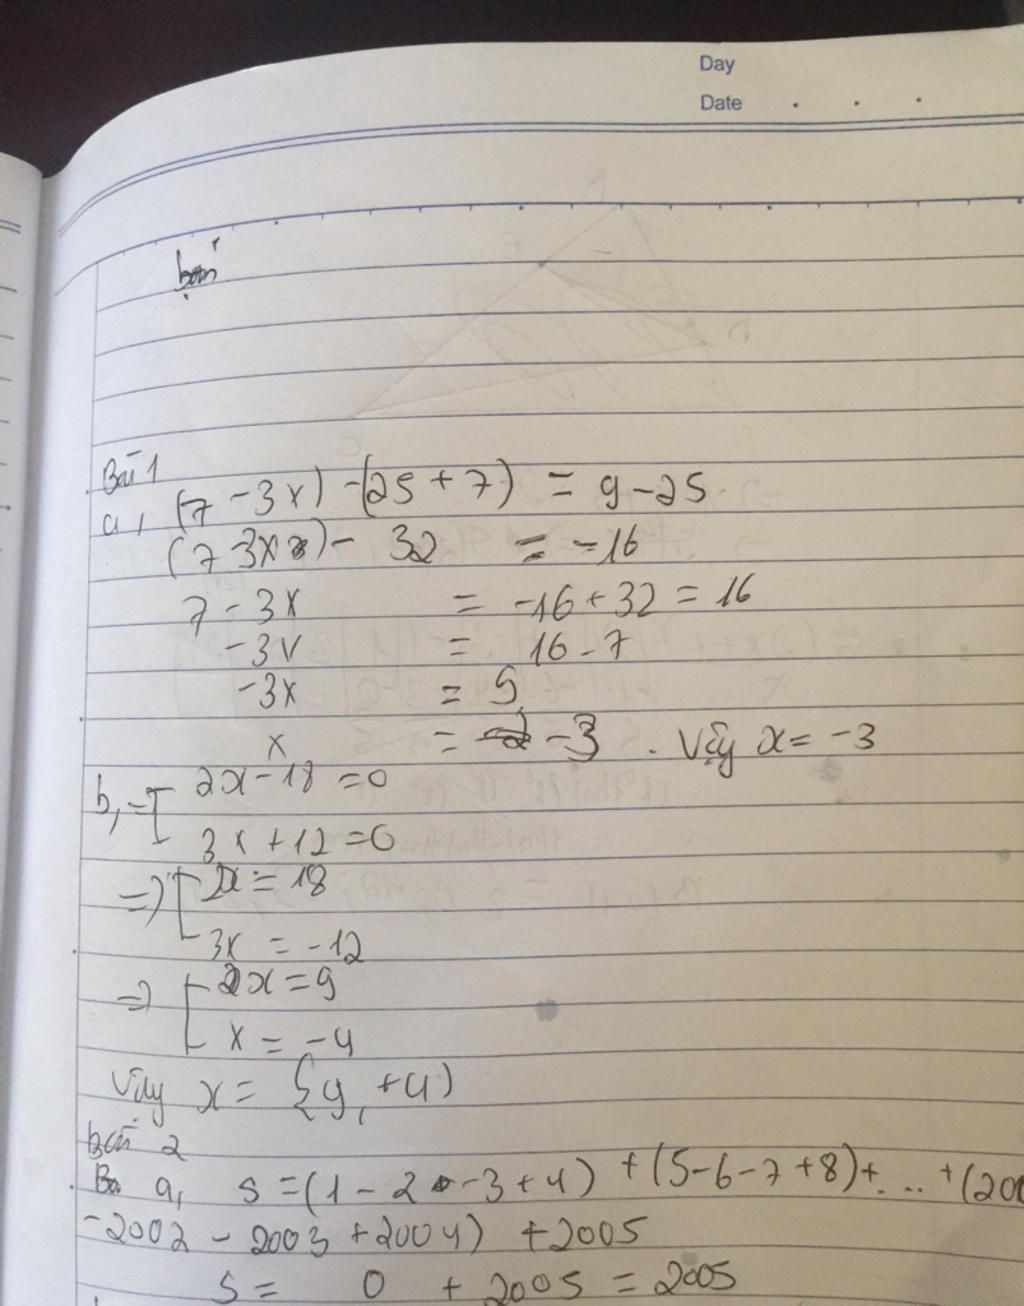 Day
Date . . .
Bài 1
a, (7 - 3x) - (25 + 7) = 9 - 25
(7 3x) - 32 = -16
7 - 3x = -16 + 32 = 16
-3x = 16 - 7
-3x = 9
x = -3. Vậy x = -3
b, => [ 2x - 18 = 0
3x + 12 = 0
=> [ 2x = 18
3x = -12
=> [ x = 9
x = -4
Vậy x = {9, +4}
bài 2
a, S = (1 - 2 - 3 + 4) + (5 - 6 - 7 + 8) + ... + (200
- 2002 - 2003 + 2004) + 2005
S = 0 + 2005 = 2005